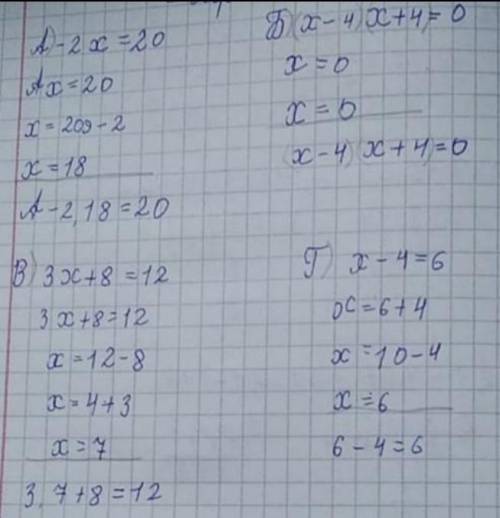 А) -2x = 20
Ax = 20
x = 209 - 2
x = 18
A - 2, 18 = 20
Б) (x - 4) (x + 4) = 0
x = 0
x = 0
(x - 4) (x + 4) = 0
В) 3x + 8 = 12
3x + 8 = 12
x = 12 - 8
x = 4 + 3
x = 7
3, 7 + 8 = 12
Г) x - 4 = 6
x = 6 + 4
x = 10 - 4
x = 6
6 - 4 = 6